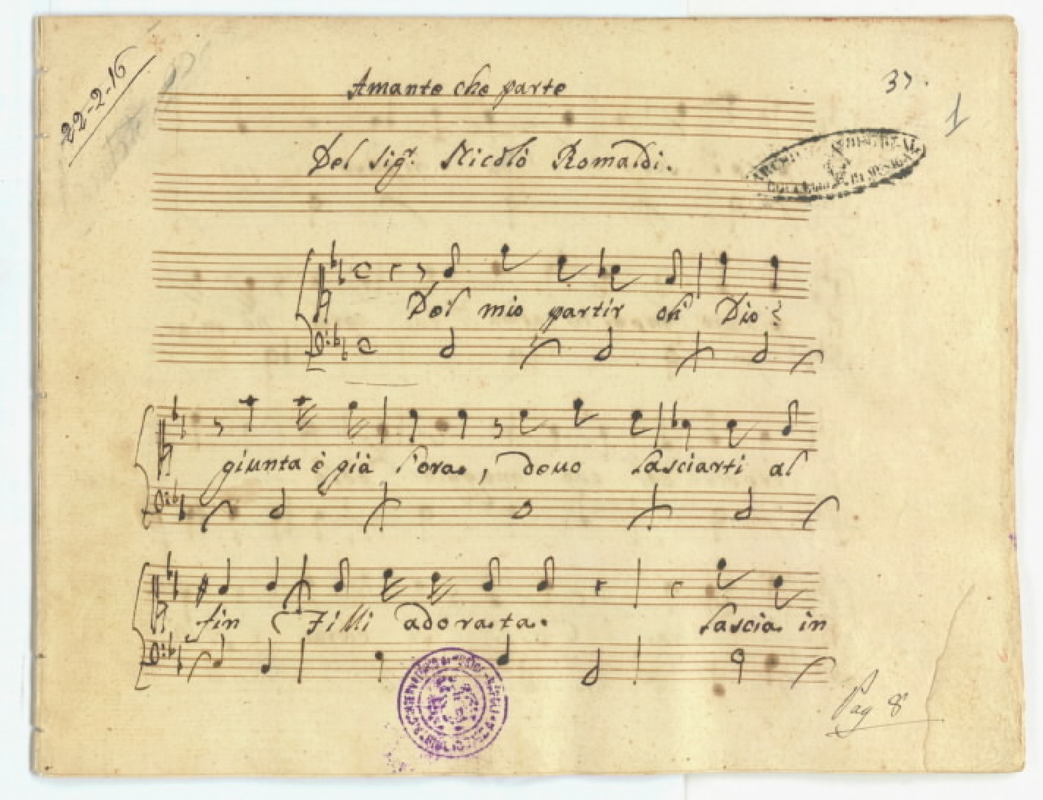 22-2-16
Amante che parte
37.
1
Del Sig.r Nicolò Romaldi.
Del mio partir oh Dio?
giunta è già l'ora, deuo lasciarti al
fin Filli adorata. lascia in
Pag 8